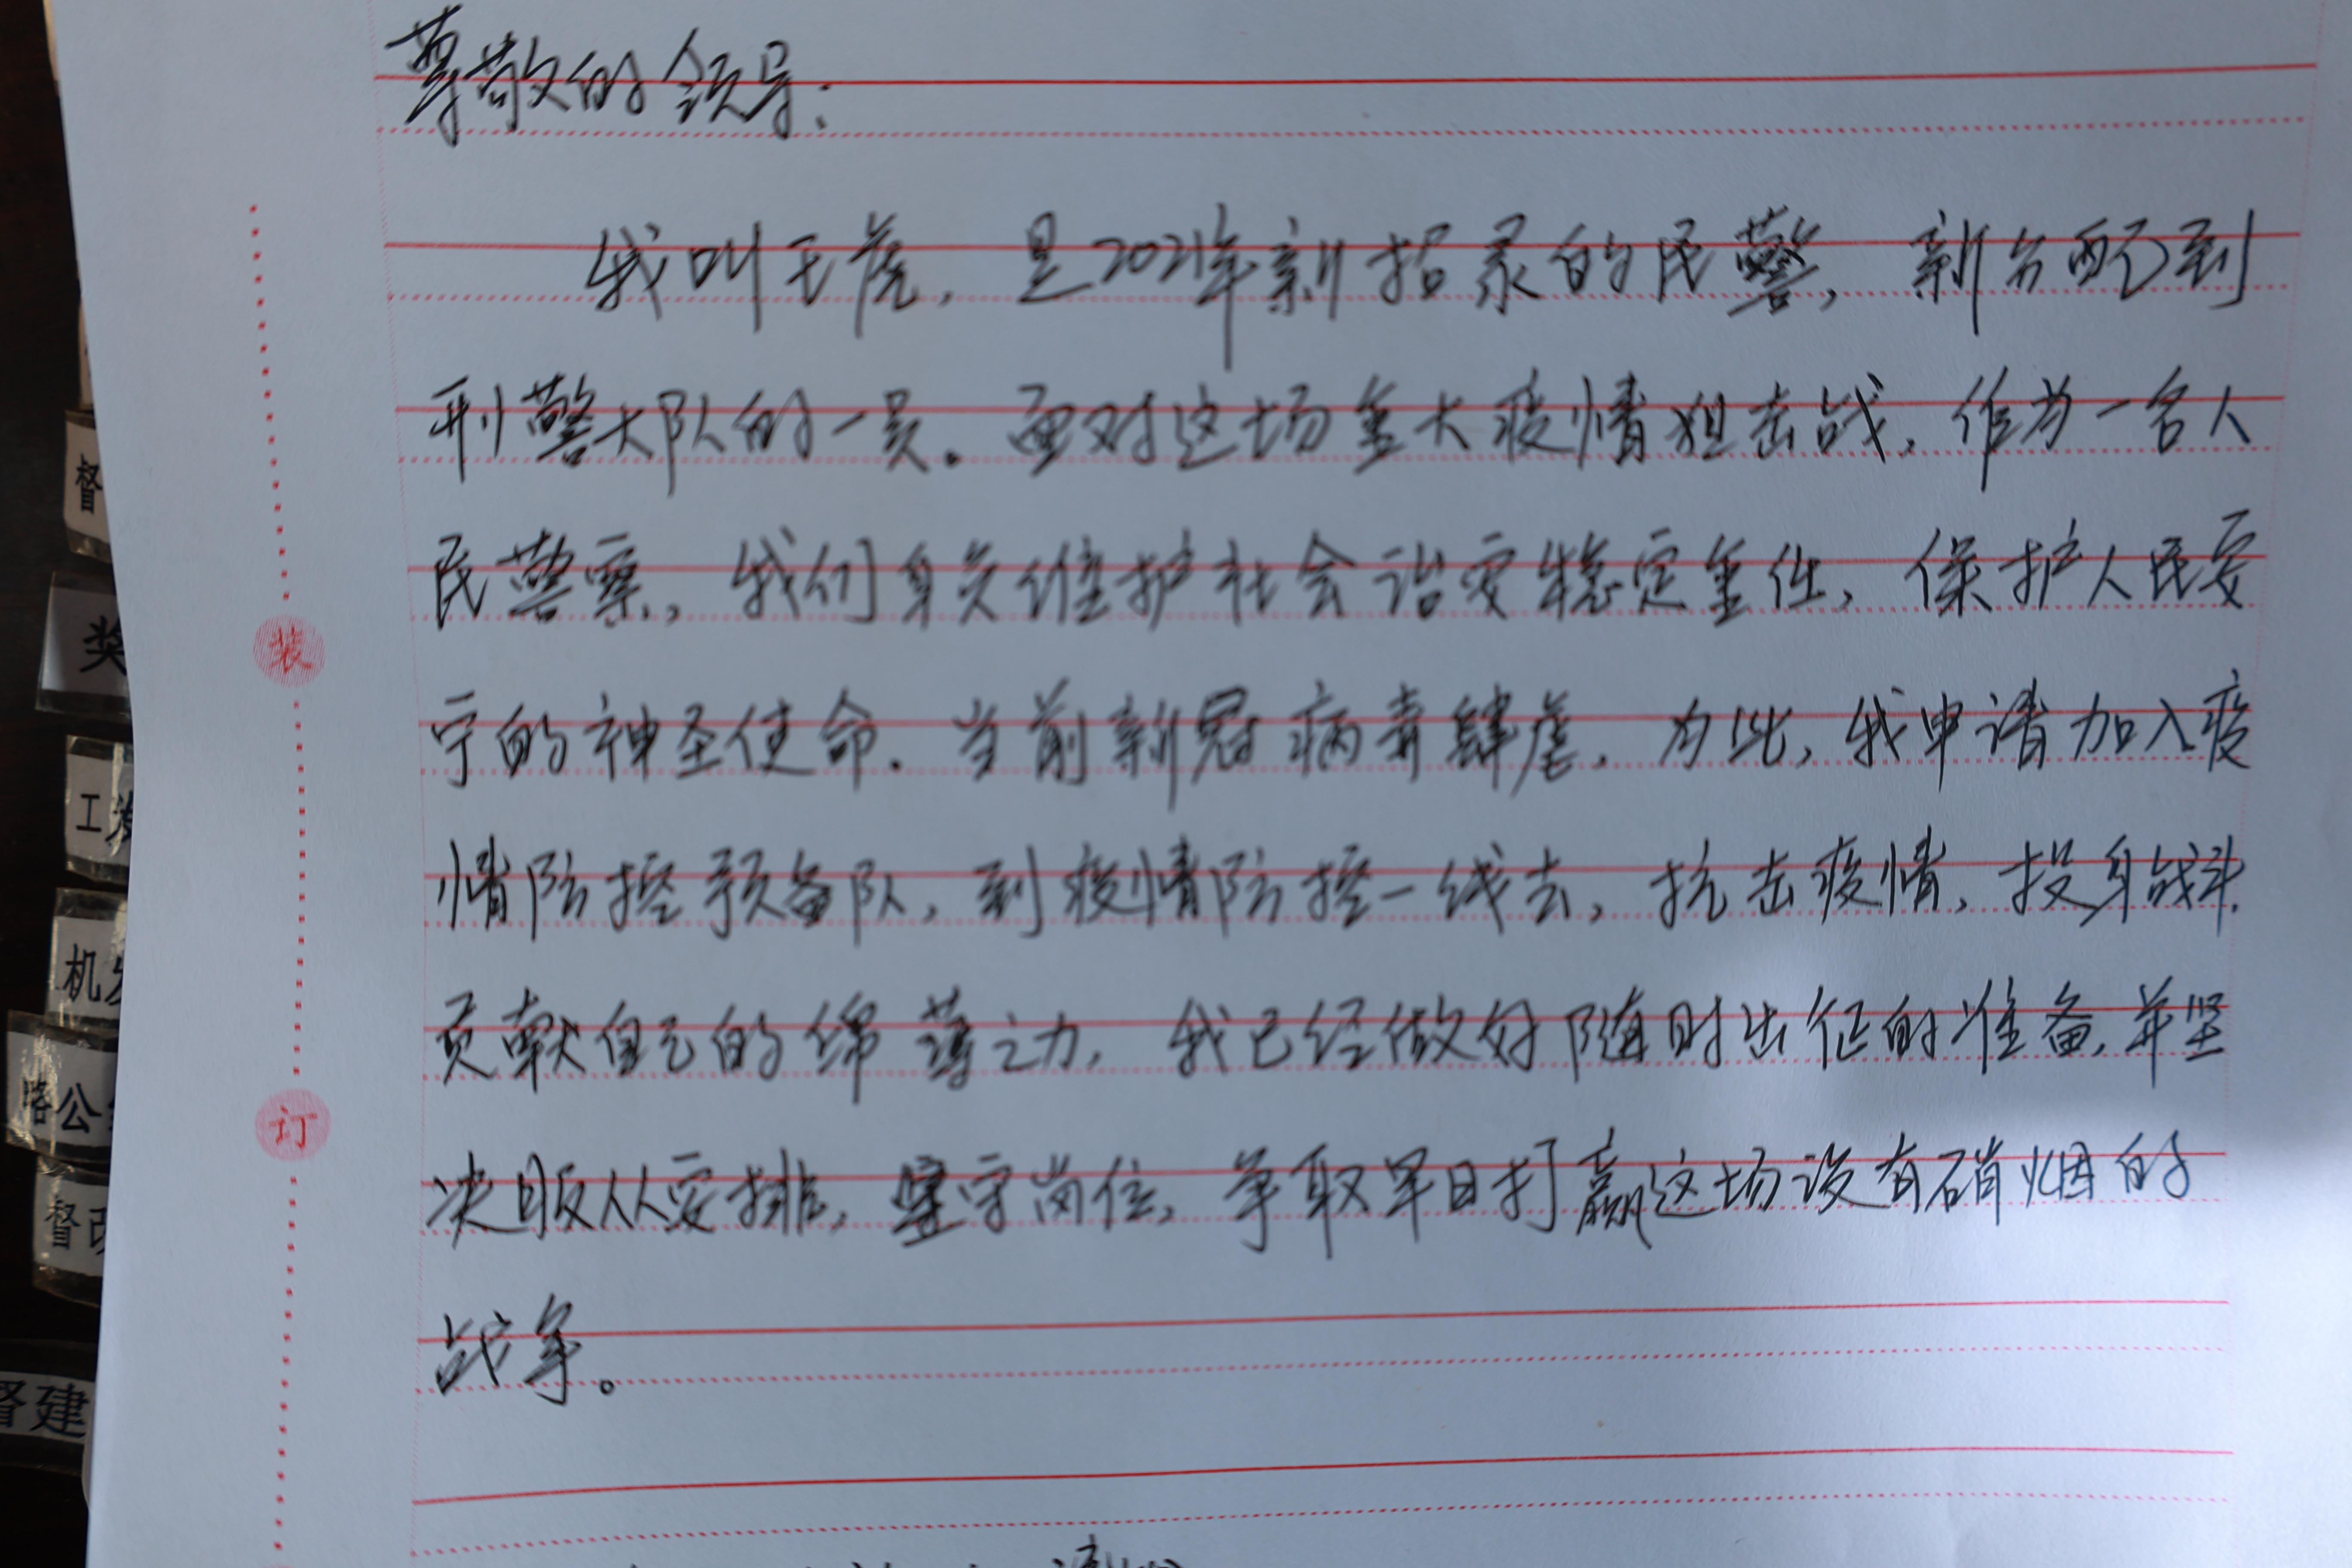 尊敬的领导：
我叫王虎，是2021年新招录的民警，新分配到
刑警大队的一员。面对这场重大疫情狙击战，作为一名人
民警察，我们身负维护社会治安稳定重任，保护人民安
宁的神圣使命。当前新冠病毒肆虐，为此，我申请加入疫
情防控预备队，到疫情防控一线去，抗击疫情，投身战斗，
贡献自己的绵薄之力，我已经做好随时出征的准备，并坚
决服从安排，坚守岗位，争取早日打赢这场没有硝烟的
战争。
装
订
督
奖
工
机
公
督
督建